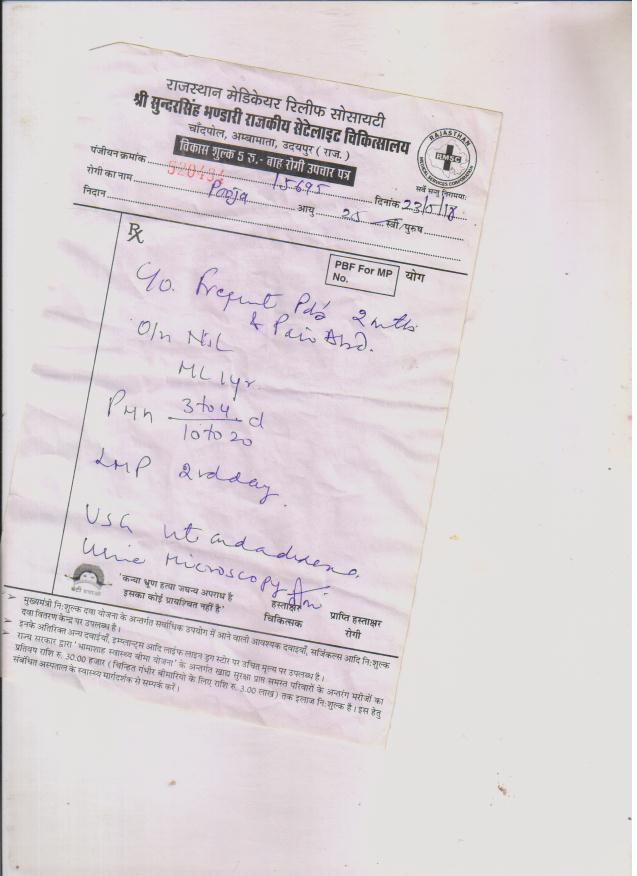 राजस्थान मेडिकेयर रिलीफ सोसायटी
श्री सुन्दरसिंह भण्डारी राजकीय सेटेलाइट चिकित्सालय
चाँदपोल, अम्बामाता, उदयपुर ( राज. )
विकास शुल्क 5 रु.- बाह रोगी उपचार पत्र
RAJASTHAN
RMSC
MEDICAL SERVICES CORPORATION
सर्वे सन्तु निरामयाः
पंजीयन क्रमांक 520494 15695 दिनांक 23/5/18
रोगी का नाम Pooja आयु 25 स्त्री/पुरुष
निदान
Rx
PBF For MP
No.
योग
C/o. Frequent Pd's 2 mths
& Pain Abd.
O/H Nil
ML 1yr
PMH 3 to 4 d
10 to 20
LMP 2nd day
USG ut and adnexa
Urine Microscopy
बेटी बचाओ
'कन्या भ्रूण हत्या जघन्य अपराध है
इसका कोई प्रायश्चित नहीं है'
हस्ताक्षर
चिकित्सक
प्राप्ति हस्ताक्षर
रोगी
मुख्यमंत्री नि:शुल्क दवा योजना के अन्तर्गत सर्वाधिक उपयोग में आने वाली आवश्यक दवाइयाँ, सर्जिकल्स आदि नि:शुल्क
दवा वितरण केन्द्र पर उपलब्ध है।
इनके अतिरिक्त अन्य दवाईयाँ, इम्प्लान्ट्स आदि लाईफ लाइन ड्रग स्टोर पर उचित मूल्य पर उपलब्ध है।
राज्य सरकार द्वारा ' भामाशाह स्वास्थ्य बीमा योजना' के अन्तर्गत खाद्य सुरक्षा प्राप्त समस्त परिवारों के अन्तरंग मरीजों का
प्रतिवर्ष राशि रु. 30.00 हजार ( चिन्हित गंभीर बीमारियो के लिए राशि रु. 3.00 लाख ) तक इलाज नि:शुल्क है। इस हेतु
संबंधित अस्पताल के स्वास्थ्य मार्गदर्शक से सम्पर्क करें।